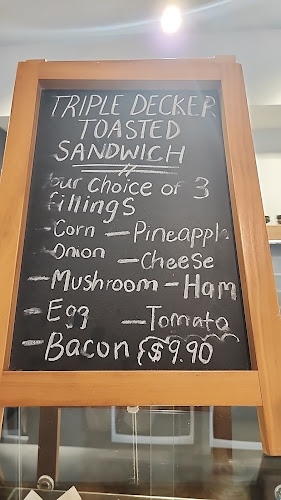 TRIPLE DECKER
TOASTED
SANDWICH
our choice of 3
fillings
- Corn - Pineapple
- Onion - Cheese
- Mushroom - Ham
- Egg - Tomato
- Bacon {$9.90